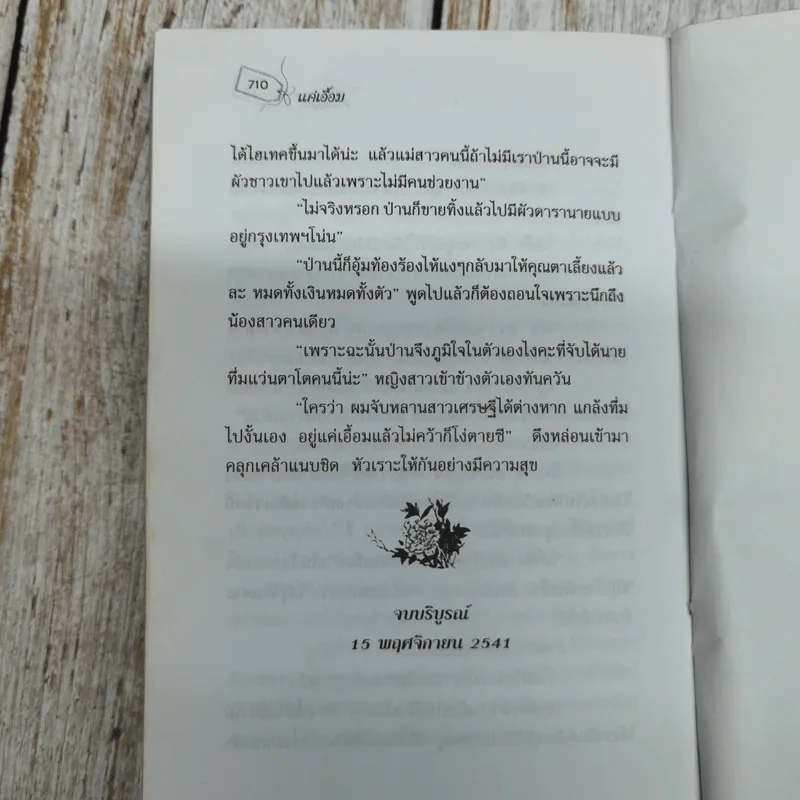 710
แค่เอื้อม
ได้ไฮเทคขึ้นมาได้น่ะ แล้วแม่สาวคนนี้ถ้าไม่มีเราป่านนี้อาจจะมี
ผัวชาวเขาไปแล้วเพราะไม่มีคนช่วยงาน"
“ไม่จริงหรอก ป่านก็ขายทิ้งแล้วไปมีผัวดารานายแบบ
อยู่กรุงเทพฯโน่น”
“ป่านนี้ก็อุ้มท้องร้องไห้แงๆกลับมาให้คุณตาเลี้ยงแล้ว
ละ หมดทั้งเงินหมดทั้งตัว” พูดไปแล้วก็ต้องถอนใจเพราะนึกถึง
น้องสาวคนเดียว
“เพราะฉะนั้นป่านจึงภูมิใจในตัวเองไงคะที่จับได้นาย
ทึ่มแว่นตาโตคนนี้น่ะ” หญิงสาวเข้าข้างตัวเองทันควัน
“ใครว่า ผมจับหลานสาวเศรษฐีได้ต่างหาก แกล้งทึ่ม
ไปงั้นเอง อยู่แค่เอื้อมแล้วไม่คว้าก็โง่ตายชี” ดึงหล่อนเข้ามา
คลุกเคล้าแนบชิด หัวเราะให้กันอย่างมีความสุข
จบบริบูรณ์
15 พฤศจิกายน 2541